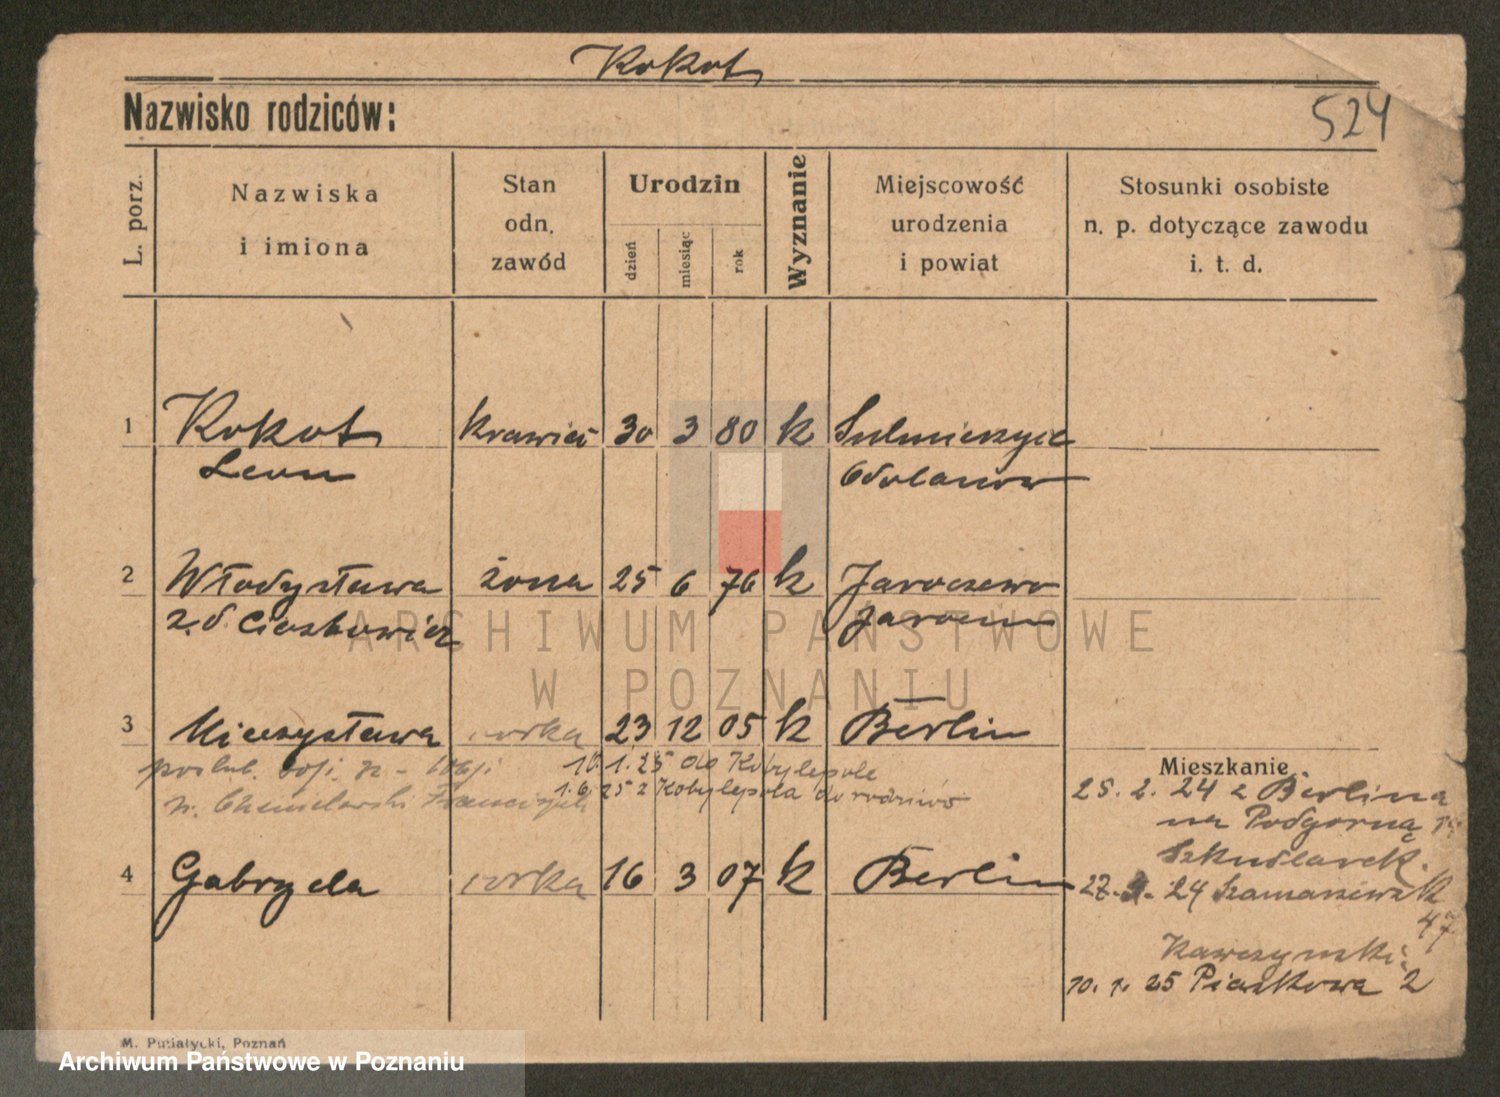 Kokot
Nazwisko rodziców:
524
L. porz.
Nazwiska
i imiona
Stan
odn.
zawód
Urodzin
dzień
miesiąc
rok
Wyznanie
Miejscowość
urodzenia
i powiat
Stosunki osobiste
n. p. dotyczące zawodu
i. t. d.
1 Kokot krawiec 30 3 80 k Sulmierzyce
Leon Odolanow
2 Włodysława żona 25 6 76 k Jaroczewo
z. d. Jarocin
3 Mieczysława córka 23 12 05 k Berlin
Mieszkanie
poślub.
10.1.25 do Kobylepole
1.6.25 z Kobylepola do rodziców
n. Chmielarski Franciszek
25. 2. 24 z Berlina
na Podgorną
Szkudlarek.
4 Gabryela córka 16 3 07 k Berlin
24 Szamarzewsk
47
Kawczynski.
10. 1. 25 Piaskowa 2
ARCHIWUM PAŃSTWOWE
W POZNANIU
M. Putiatycki, Poznań
Archiwum Państwowe w Poznaniu